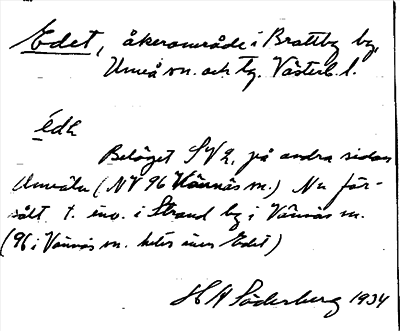 Edet, åkerområde i Brattby by,
Umeå sn. och tg. Västerb. l.
édh
Beläget SV 2, på andra sidan
Umeälv (NV 96 Vännäs sn.) Nu för-
sålt t. inv. i Strand by i Vännäs sn.
(96 i Vännäs sn. heter även Edet)
H A Söderberg 1934